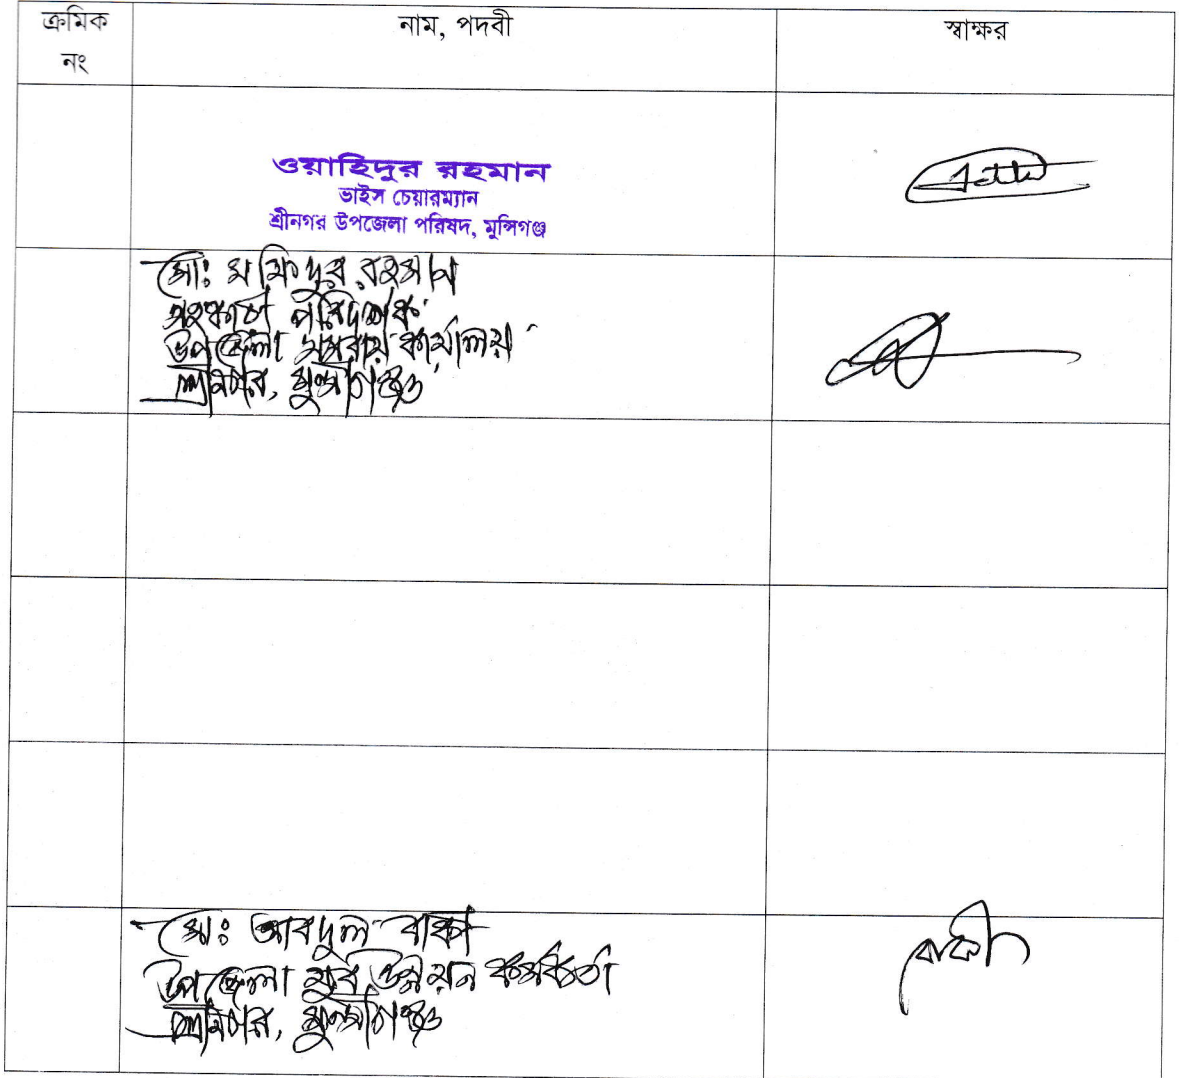 ক্রমিক নাম, পদবী স্বাক্ষর
নং
ওয়াহিদুর রহমান
ভাইস চেয়ারম্যান
শ্রীনগর উপজেলা পরিষদ, মুন্সিগঞ্জ
মোঃ মফিদুর রহমান
পরিদর্শক
উপজেলা সমবায় কার্যালয়
শ্রীনগর, মুন্সীগঞ্জ
মোঃ আবদুল বাকী
বাকী
উপজেলা যুব উন্নয়ন কর্মকর্তা
শ্রীনগর, মুন্সীগঞ্জ